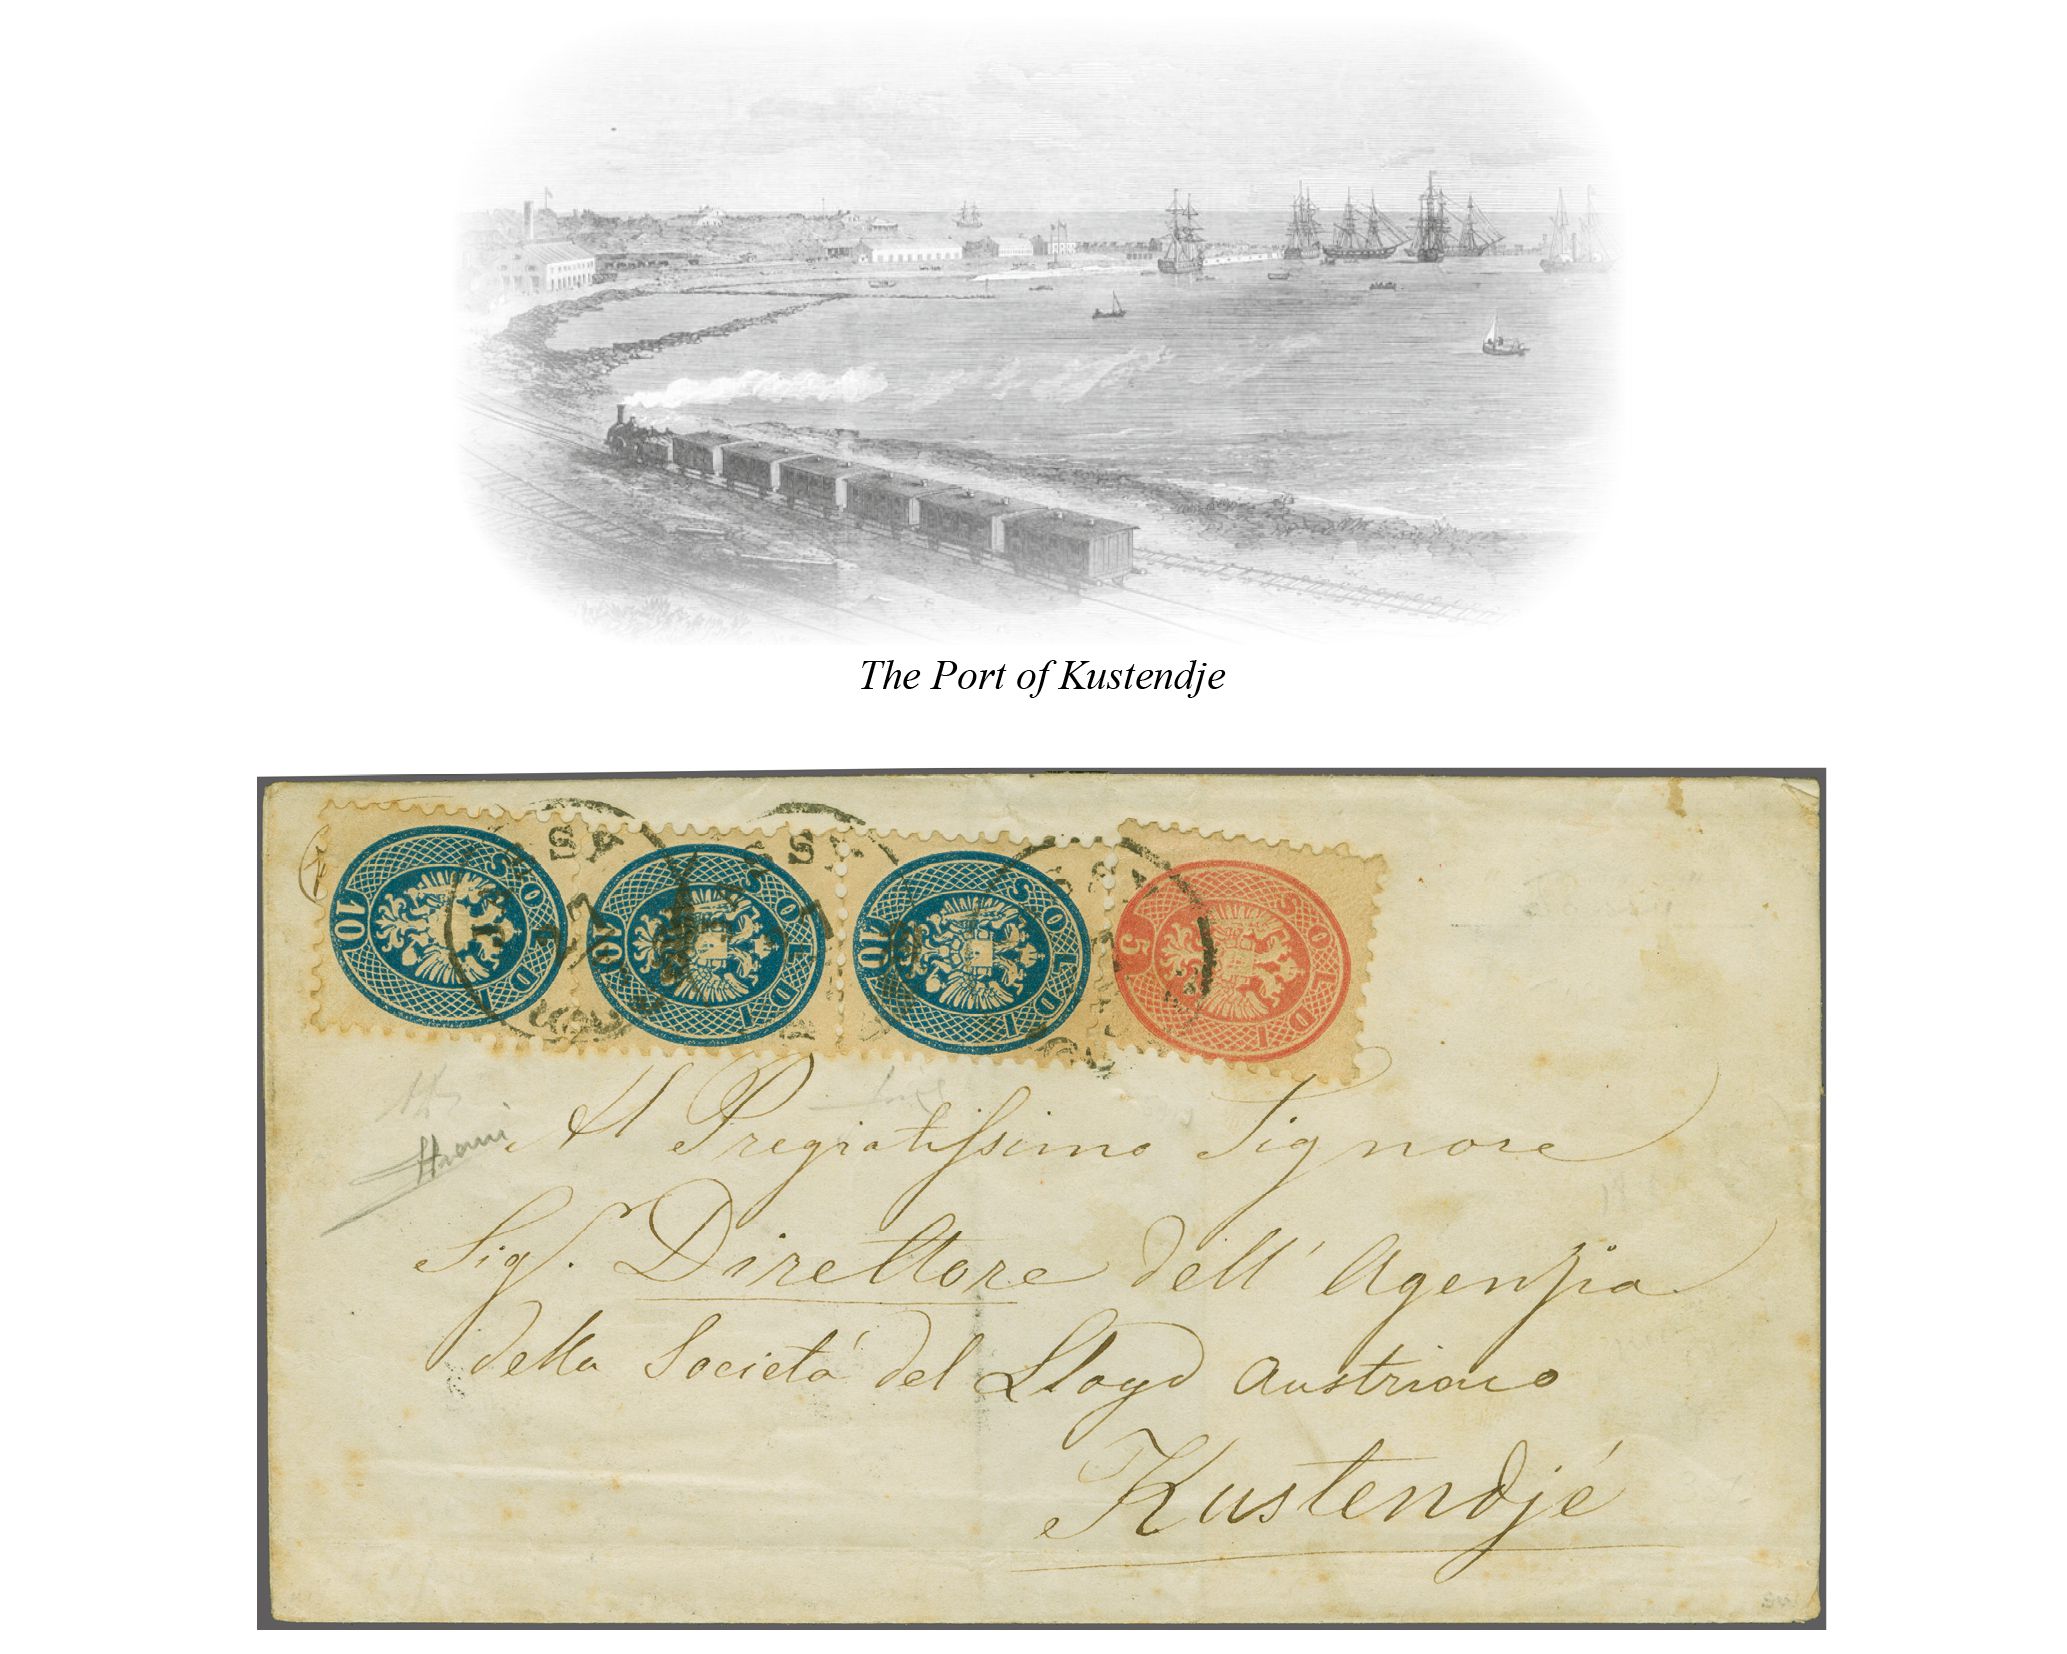 The Port of Kustendje
10 SOLDI
10 SOLDI
10 SOLDI
5 SOLDI
Al Pregiatissimo Signore
Sigr. Direttore dell' Agenzia
della Società del Lloyd Austriaco
Kustendjé